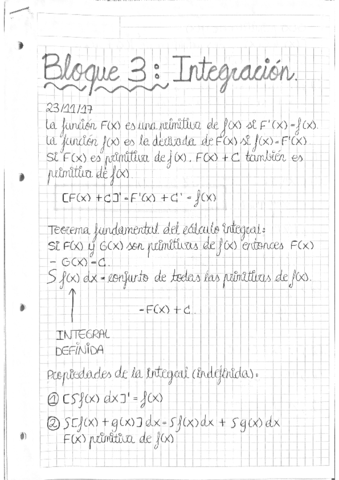 Bloque 3: Integración.
23/11/17
La función F(x) es una primitiva de f(x) si F'(x)=f(x).
La función f(x) es la derivada de F(x) si f(x)=F'(x)
Si F(x) es primitiva de f(x), F(x) + C también es
primitiva de f(x).
[F(x) + C]' = F'(x) + C' = f(x)
Teorema fundamental del cálculo integral:
Si F(x) y G(x) son primitivas de f(x) entonces F(x)
- G(x) = C.
∫ f(x) dx = conjunto de todas las primitivas de f(x).
= F(x) + C
INTEGRAL
DEFINIDA
Propiedades de la integral (indefinida):
① [∫ f(x) dx]' = f(x)
② ∫[f(x) + g(x)] dx = ∫ f(x) dx + ∫ g(x) dx
F(x) primitiva de f(x)